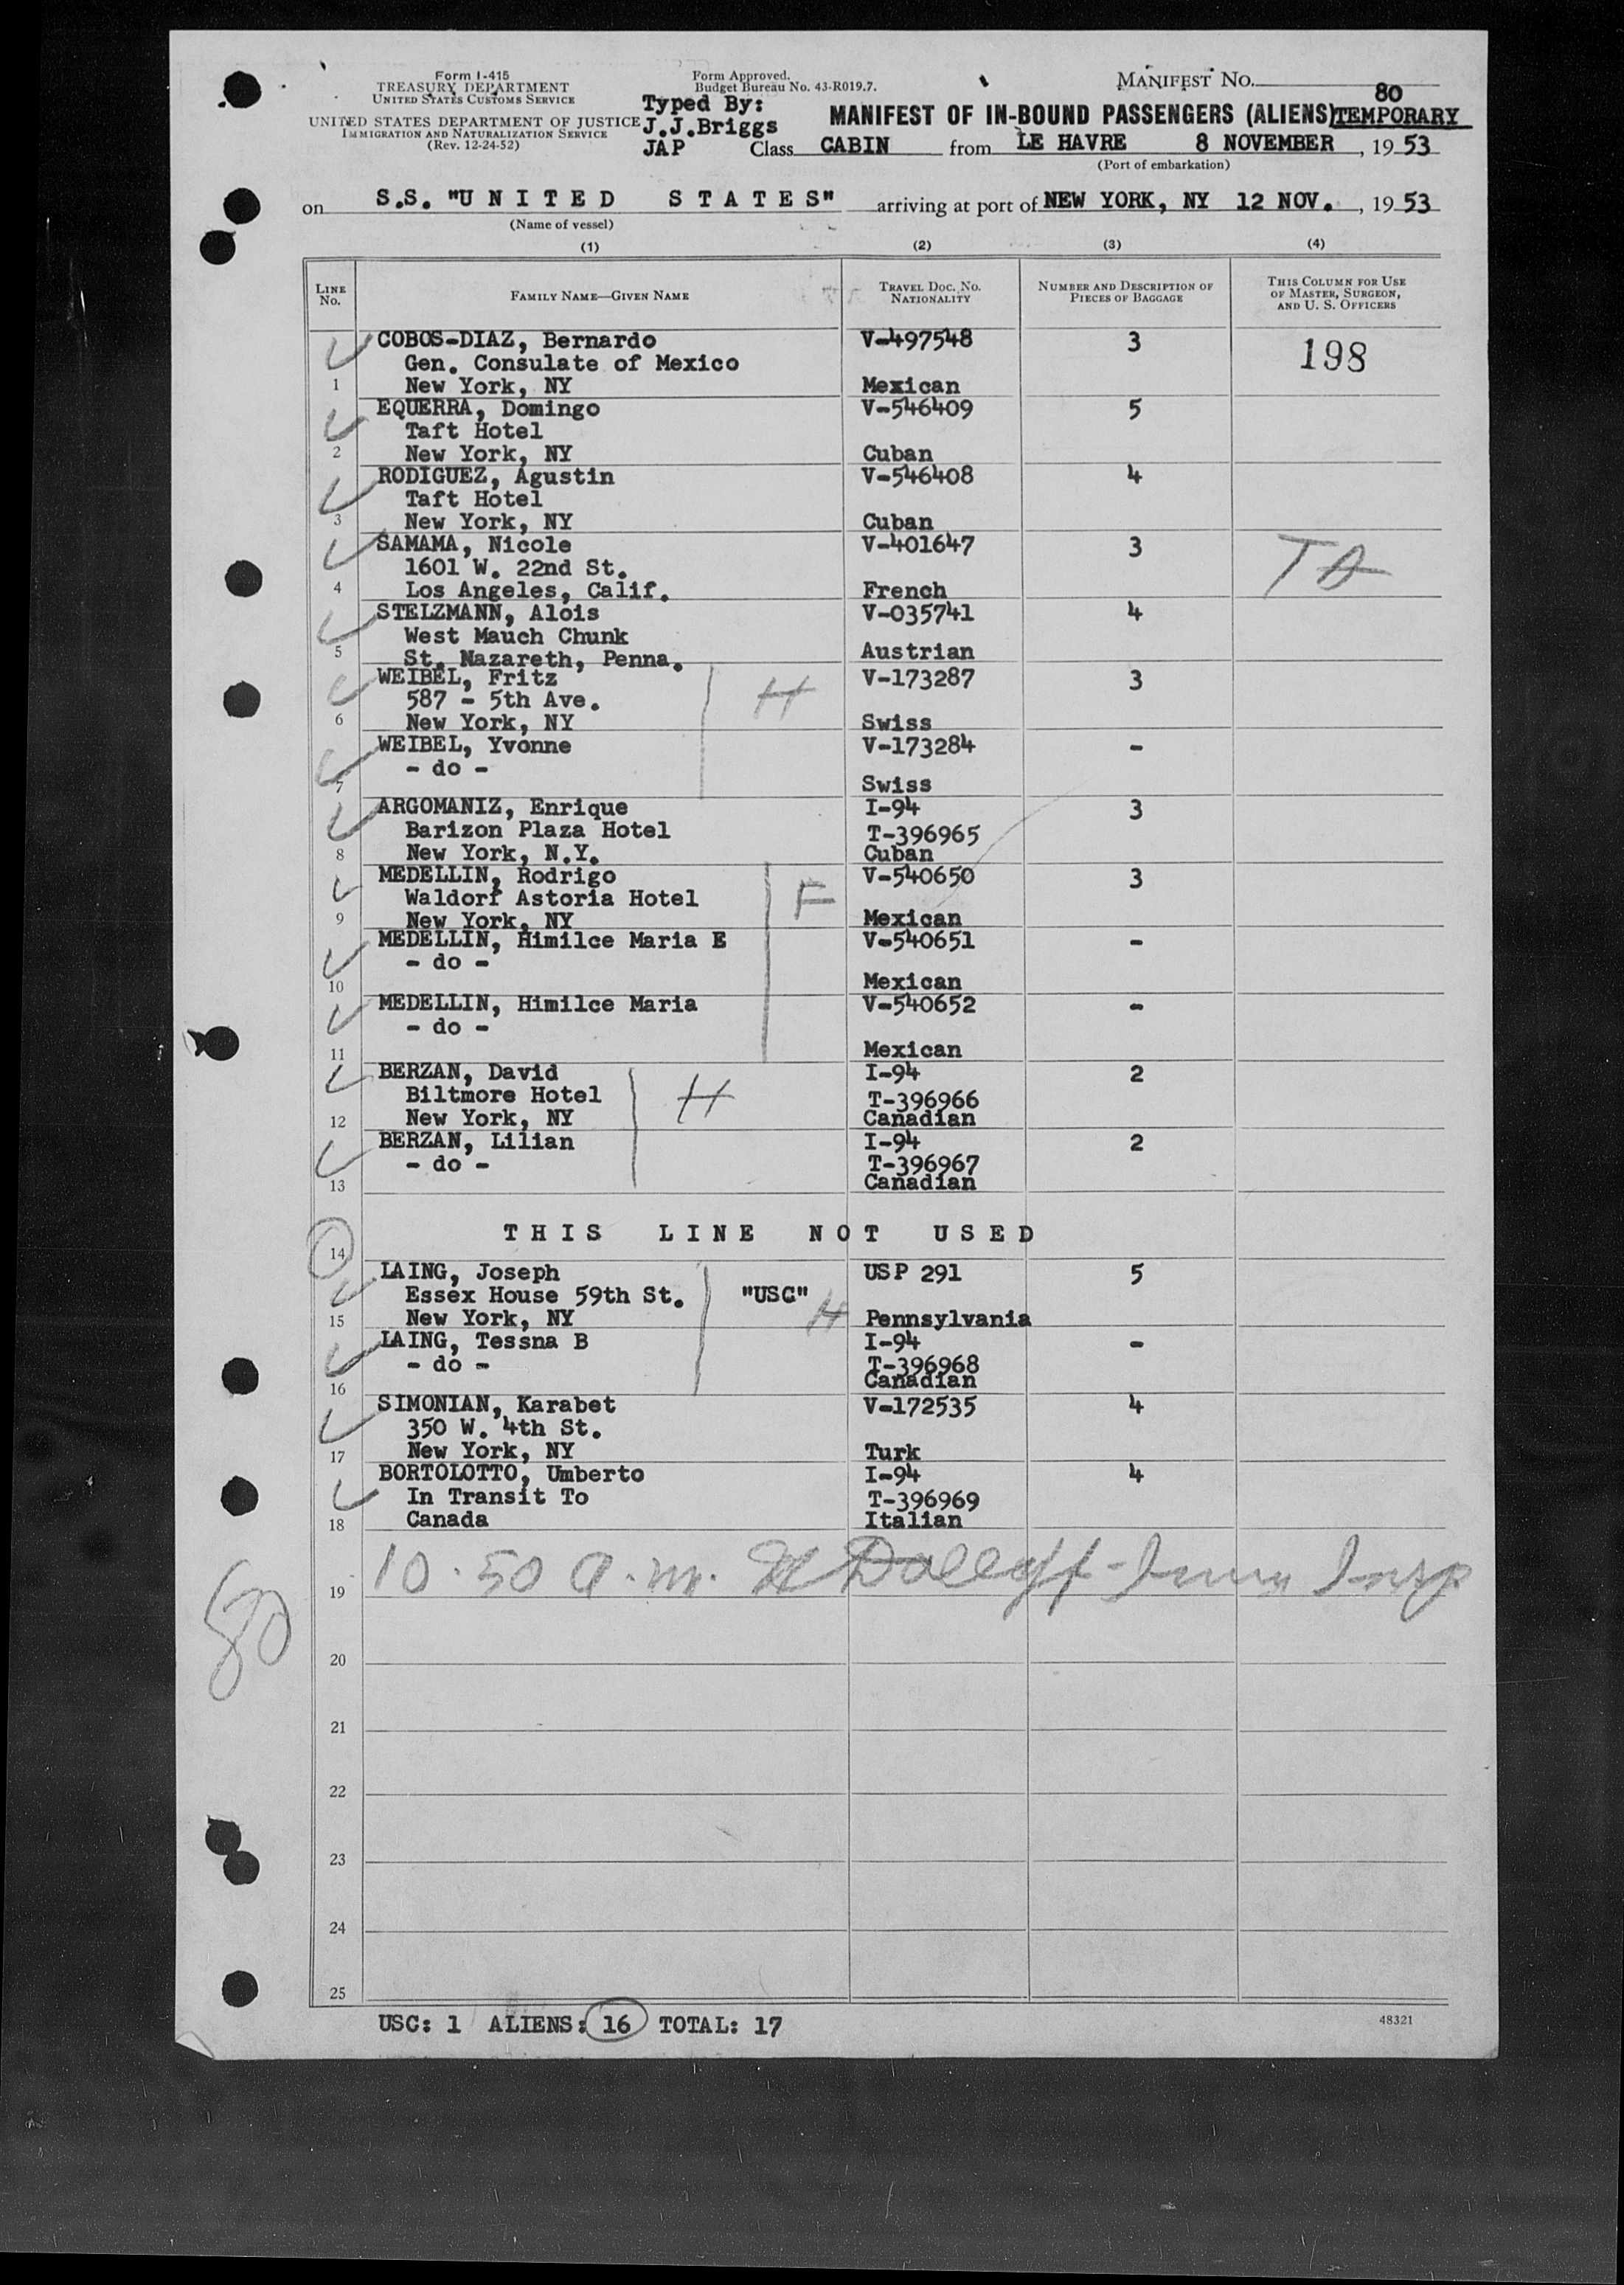 Form I-415
TREASURY DEPARTMENT
UNITED STATES CUSTOMS SERVICE
UNITED STATES DEPARTMENT OF JUSTICE
IMMIGRATION AND NATURALIZATION SERVICE
(Rev. 12-24-52)
Form Approved.
Budget Bureau No. 43-R019.7.
Typed By:
J.J.Briggs
JAP
MANIFEST NO.
80
MANIFEST OF IN-BOUND PASSENGERS (ALIENS) TEMPORARY
Class CABIN from LE HAVRE 8 NOVEMBER, 1953
(Port of embarkation)
on S.S. "U N I T E D S T A T E S" arriving at port of NEW YORK, NY 12 NOV., 1953
(Name of vessel)
(1) (2) (3) (4)
LINE NO. FAMILY NAME—GIVEN NAME TRAVEL DOC. NO. NATIONALITY NUMBER AND DESCRIPTION OF PIECES OF BAGGAGE THIS COLUMN FOR USE OF MASTER, SURGEON, AND U. S. OFFICERS
COBOS-DIAZ, Bernardo V-497548 3 198
Gen. Consulate of Mexico
1 New York, NY Mexican
EQUERRA, Domingo V-546409 5
Taft Hotel
2 New York, NY Cuban
RODIGUEZ, Agustin V-546408 4
Taft Hotel
3 New York, NY Cuban
SAMAMA, Nicole V-401647 3
1601 W. 22nd St.
4 Los Angeles, Calif. French
STELZMANN, Alois V-035741 4
West Mauch Chunk
5 St. Nazareth, Penna. Austrian
WEIBEL, Fritz V-173287 3
587 - 5th Ave. H
6 New York, NY Swiss
WEIBEL, Yvonne V-173284 -
- do -
7 Swiss
ARGOMANIZ, Enrique I-94 3
Barizon Plaza Hotel T-396965
8 New York, N.Y. Cuban
MEDELLIN, Rodrigo V-540650 3
Waldorf Astoria Hotel F
9 New York, NY Mexican
MEDELLIN, Himilce Maria E V-540651 -
- do -
10 Mexican
MEDELLIN, Himilce Maria V-540652 -
- do -
11 Mexican
BERZAN, David I-94 2
Biltmore Hotel H T-396966
12 New York, NY Canadian
BERZAN, Lilian I-94 2
- do - T-396967
13 Canadian
14 T H I S L I N E N O T U S E D
LAING, Joseph USP 291 5
Essex House 59th St. "USC"
15 New York, NY H Pennsylvania
LAING, Tessna B I-94 -
- do - T-396968
16 Canadian
SIMONIAN, Karabet V-172535 4
350 W. 4th St.
17 New York, NY Turk
BORTOLOTTO, Umberto I-94 4
In Transit To T-396969
18 Canada Italian
19 10.50 a.m.
80
20
21
22
23
24
25
USC: 1 ALIENS: 16 TOTAL: 17
48321